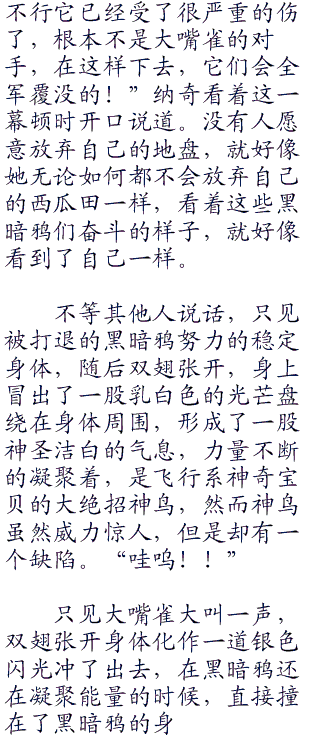 不行它已经受了很严重的伤
了，根本不是大嘴雀的对
手，在这样下去，它们会全
军覆没的！”纳奇看着这一
幕顿时开口说道。没有人愿
意放弃自己的地盘，就好像
她无论如何都不会放弃自己
的西瓜田一样，看着这些黑
暗鸦们奋斗的样子，就好像
看到了自己一样。
不等其他人说话，只见
被打退的黑暗鸦努力的稳定
身体，随后双翅张开，身上
冒出了一股乳白色的光芒盘
绕在身体周围，形成了一股
神圣洁白的气息，力量不断
的凝聚着，是飞行系神奇宝
贝的大绝招神鸟，然而神鸟
虽然威力惊人，但是却有一
个缺陷。“哇呜！！”
只见大嘴雀大叫一声，
双翅张开身体化作一道银色
闪光冲了出去，在黑暗鸦还
在凝聚能量的时候，直接撞
在了黑暗鸦的身